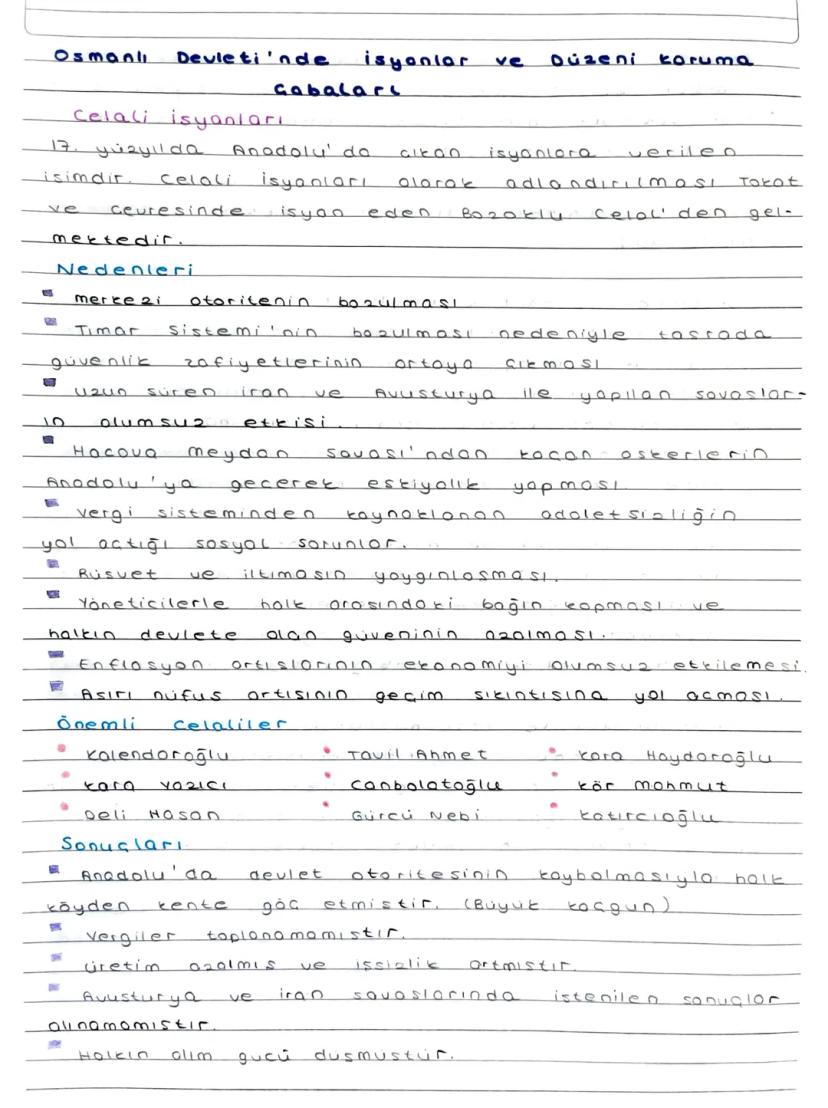 Osmanlı Devleti'nde isyanlar ve Düzeni Koruma
Çabaları
Celali isyanları
17. yüzyılda Anadolu'da çıkan isyanlara verilen
isimdir. Celali isyanları olarak adlandırılması Tokat
ve çevresinde isyan eden Bozoklu Celal'den gel-
mektedir.
Nedenleri
merkezi otoritenin bozulması
Tımar Sistemi'nin bozulması nedeniyle taşrada
güvenlik zafiyetlerinin ortaya çıkması
uzun süren iran ve Avusturya ile yapılan savaşlar-
ın olumsuz etkisi.
Haçova meydan savaşı'ndan kaçan askerlerin
Anadolu'ya geçerek eşkiyalık yapması
vergi sisteminden kaynaklanan adaletsizliğin
yol açtığı sosyal sorunlar.
Rüşvet ve iltimasın yaygınlaşması.
Yöneticilerle halk arasındaki bağın kopması ve
halkın devlete olan güveninin azalması.
Enflasyon artışlarının ekonomiyi olumsuz etkilemesi.
Aşırı nüfus artışının geçim sıkıntısına yol açması.
Önemli Celaliler
Kalendaroğlu Tavil Ahmet Kara Haydaroğlu
Kara Yazıcı Canbolatoğlu Kör mahmut
Deli Hasan Gürcü Nebi Katırcıoğlu
Sonuçları
Anadolu'da devlet otoritesinin kaybolmasıyla halk
köyden kente göç etmiştir. (Büyük kaçgun)
Vergiler toplanamamıştır.
üretim azalmış ve işsizlik artmıştır.
Avusturya ve iran savaşlarında istenilen sonuçlar
alınamamıştır.
Halkın alım gücü düşmüştür.